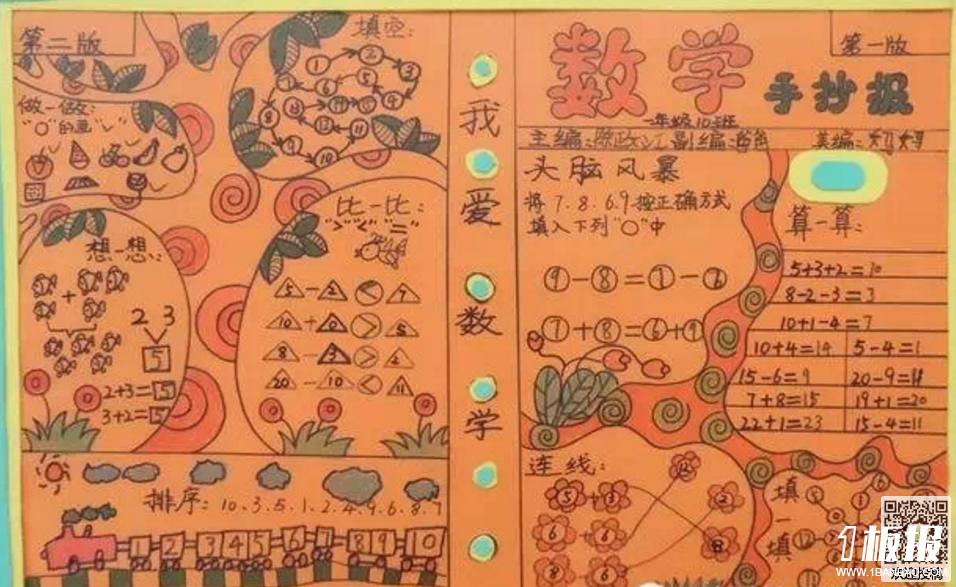 第二版
填空:
做一做:
"○"的画"✓"
比一比:
">""<""="
想一想:
2 3
5
2+3=5
3+2=5
10+0>5
8-3>2
20-10<11
排序: 10、3、5、1、2、4、9、6、8、7
1 2 3 4 5 6 7 8 9 10
我爱数学
数学
手抄报
第一版
一年级10班
主编:
副编:
美编:
头脑风暴
将7.8.6.9按正确方式
填入下列"○"中
9-8=7-6
7+8=6+9
算一算:
5+3+2=10
8-2-3=3
10+1-4=7
10+4=14 5-4=1
15-6=9 20-9=11
7+8=15 19+1=20
22+1=23 15-4=11
连线:
5+3
6+6
12
2
8
填一填
1板报
WWW.1BANBAO.COM
欢迎投稿